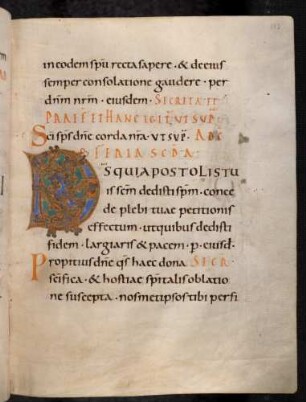 in eodem spū recta sapere · & de eius
semper consolatione gaudere · per
dn̄m nr̄m · eiusdem · SECRETA ET
PRAEF ET HANC IGIT UT SUP
Scī sp̄s dn̄e corda nr̄a · UT SUP · AD CO
FERIA SCDA
DS QUI APOSTOLIS TU
is sc̄m dedisti sp̄m · conce
de plebi tuae petitionis
effectum · ut quibus dedisti
fidem · largiaris & pacem · p · eiusd ·
Propitius dn̄e qs̄ haec dona SECR ·
sc̄ifica · & hostiae sp̄italis oblatio
ne suscepta · nosmet ipsos tibi perfi